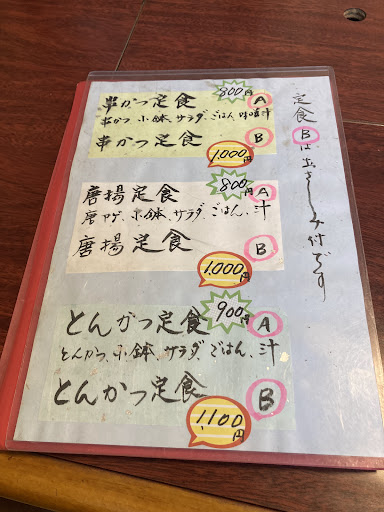 定食Ⓑはおさしみ付です
串かつ定食 800円 Ⓐ
串かつ、小鉢、サラダ、ごはん、味噌汁
串かつ定食 Ⓑ
1,000円
唐揚定食 800円 Ⓐ
唐アゲ、小鉢、サラダ、ごはん、汁
唐揚定食 Ⓑ
1,000円
とんかつ定食 900円 Ⓐ
とんかつ、小鉢、サラダ、ごはん、汁
とんかつ定食 Ⓑ
1,100円